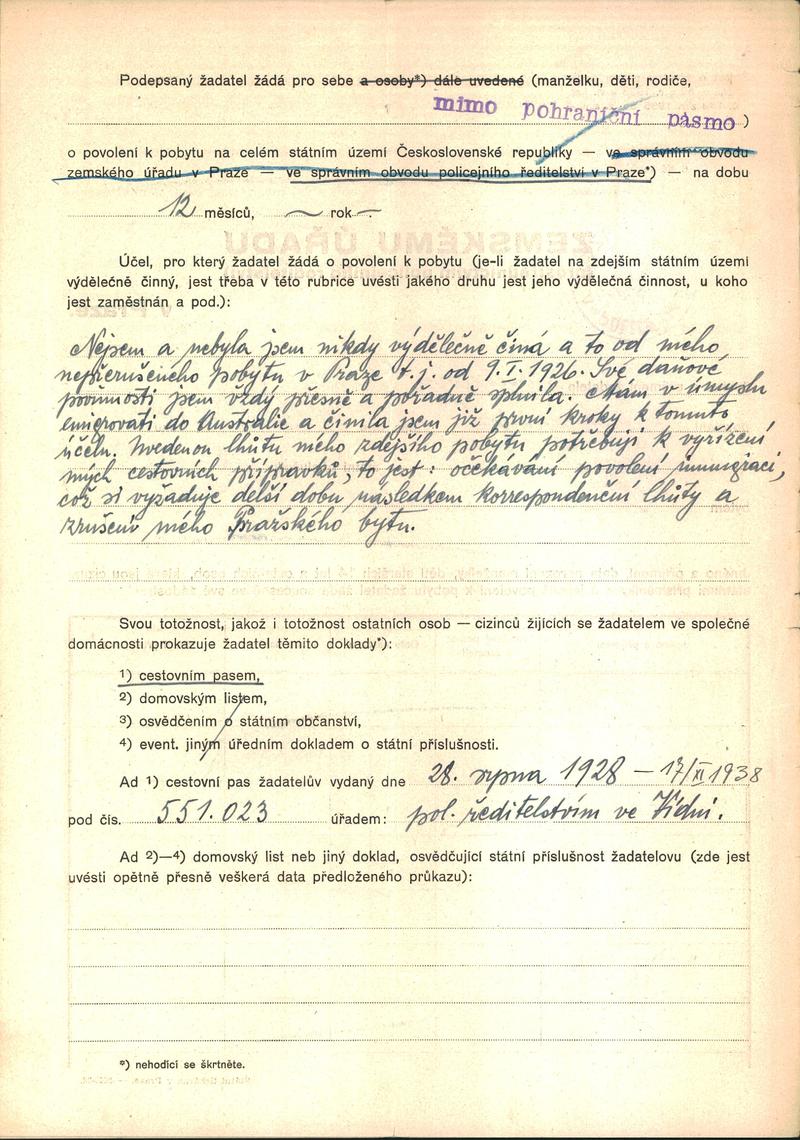 Podepsaný žadatel žádá pro sebe a osoby*) dále uvedené (manželku, děti, rodiče,
mimo pohraniční pásmo )
o povolení k pobytu na celém státním území Československé republiky — ve správním obvodu
zemského úřadu v Praze — ve správním obvodu policejního ředitelství v Praze*) — na dobu
12 měsíců, rok
Účel, pro který žadatel žádá o povolení k pobytu (je-li žadatel na zdejším státním území
výdělečně činný, jest třeba v této rubrice uvésti jakého druhu jest jeho výdělečná činnost, u koho
jest zaměstnán a pod.):
Nejsem a nebyla jsem nikdy výdělečně činá a to od mého
nepřerušeného pobytu v Praze t. j. od 9. I. 1926. Své daňové
povinnosti jsem vždy přesně a pořadně splnila. Mám v úmyslu
emigrovati do Australie a činila jsem již první kroky k tomuto
účelu. Uvedenou lhůtu mého zdejšího pobytu potřebuji k vyřízení
mých cestovních přípravků, to jest: očekávání povolení immigraci,
což si vyzaduje delší dobu následkem korrespondenční lhůty a
zrušení mého Pražského bytu.
Svou totožnost, jakož i totožnost ostatních osob — cizinců žijících se žadatelem ve společné
domácnosti prokazuje žadatel těmito doklady*):
1) cestovním pasem,
2) domovským listem,
3) osvědčením o státním občanství,
4) event. jiným úředním dokladem o státní příslušnosti.
Ad 1) cestovní pas žadatelův vydaný dne 28. srpna 1928 — 17/XI 1938
pod čís. 551.023 úřadem: pol. ředitelstvím ve Vídni.
Ad 2)—4) domovský list neb jiný doklad, osvědčující státní příslušnost žadatelovu (zde jest
uvésti opětně přesně veškerá data předloženého průkazu):
*) nehodící se škrtněte.